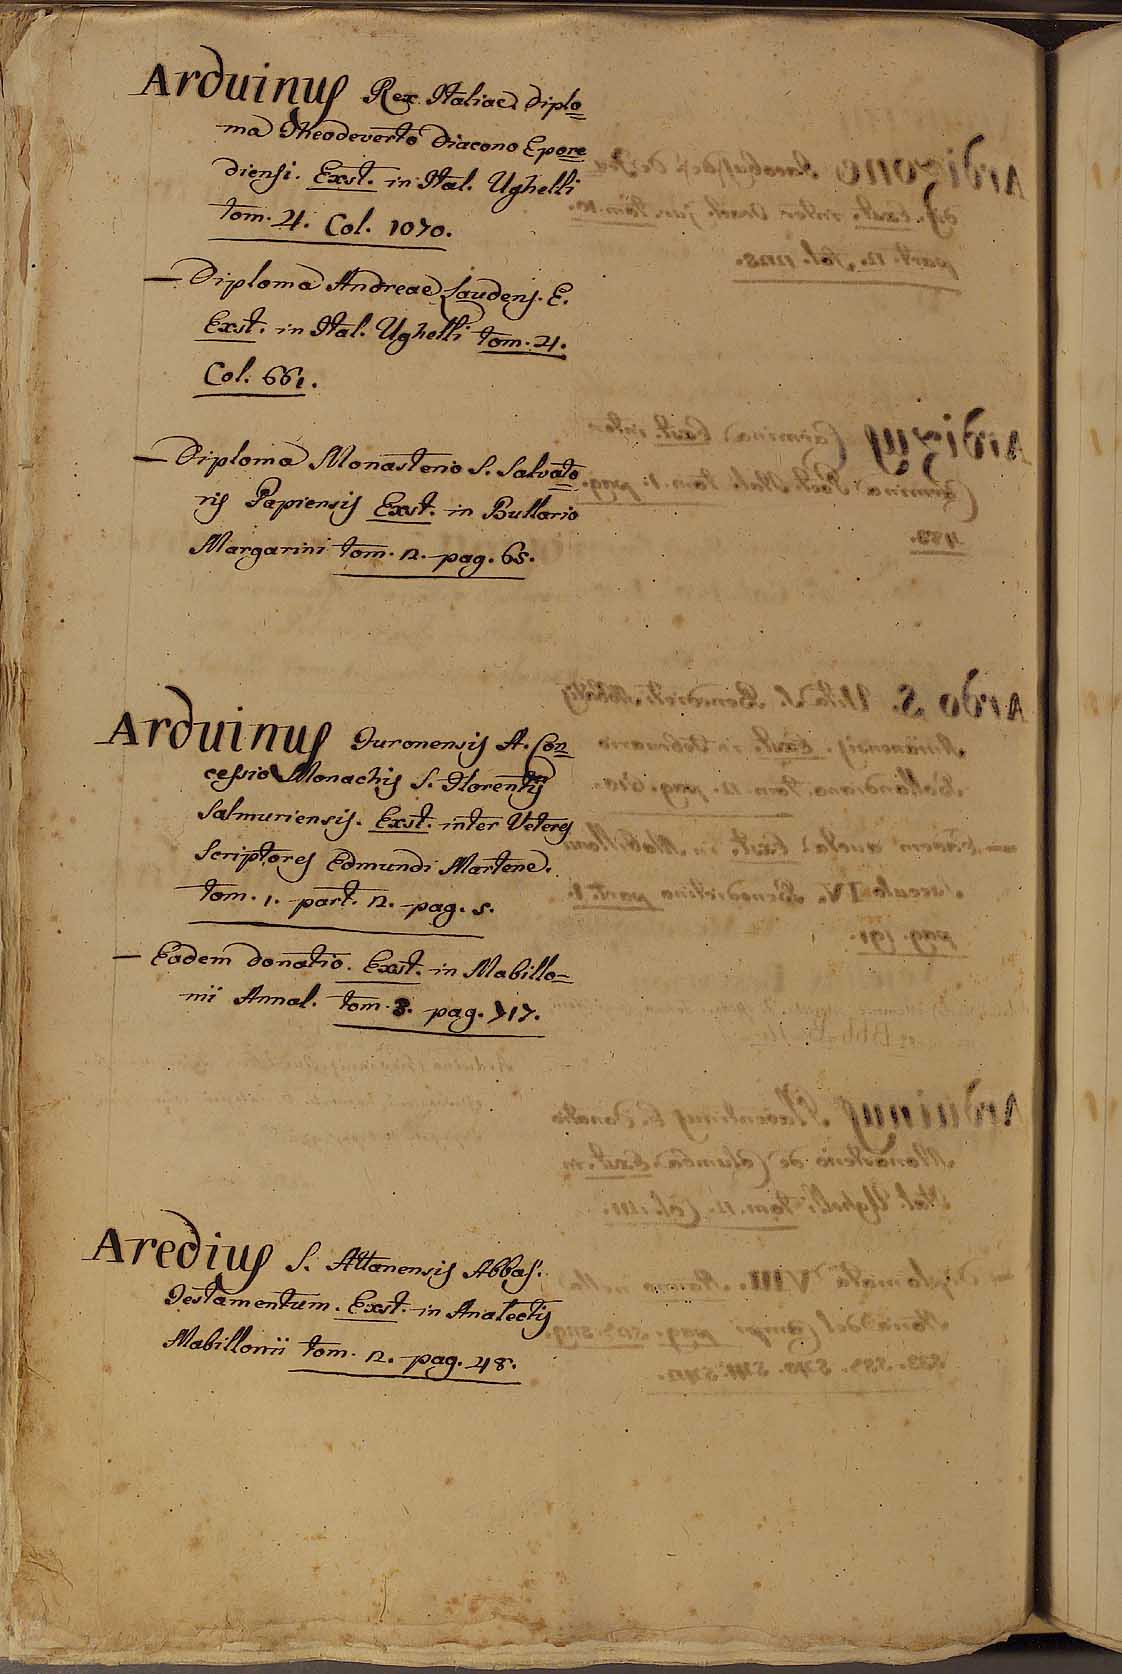 Arduinus Rex Italiae Diplo=
ma Theodeverto Diacono Epore
diensi. Exst. in Ital. Ughelli
tom. 4. Col. 1070.
— Diploma Andreae Laudens. E.
Exst. in Ital. Ughelli tom. 4.
Col. 661.
— Diploma Monasterio S. Salvato
ris Papiensis Exst. in Bullario
Margarini tom. 2. pag. 65.
Arduinus Turonensis A. Con
cessio Monachis S. Florentii
Salmuriensis. Exst. inter Veteres
Scriptores Edmundi Martene.
tom. 1. part. 2. pag. 5.
— Eadem donatio. Exst. in Mabillo=
nii Annal. tom. 3. pag. 717.
Aredius S. Attanensis Abbas.
Testamentum. Exst. in Analectis
Mabillonii tom. 2. pag. 48.